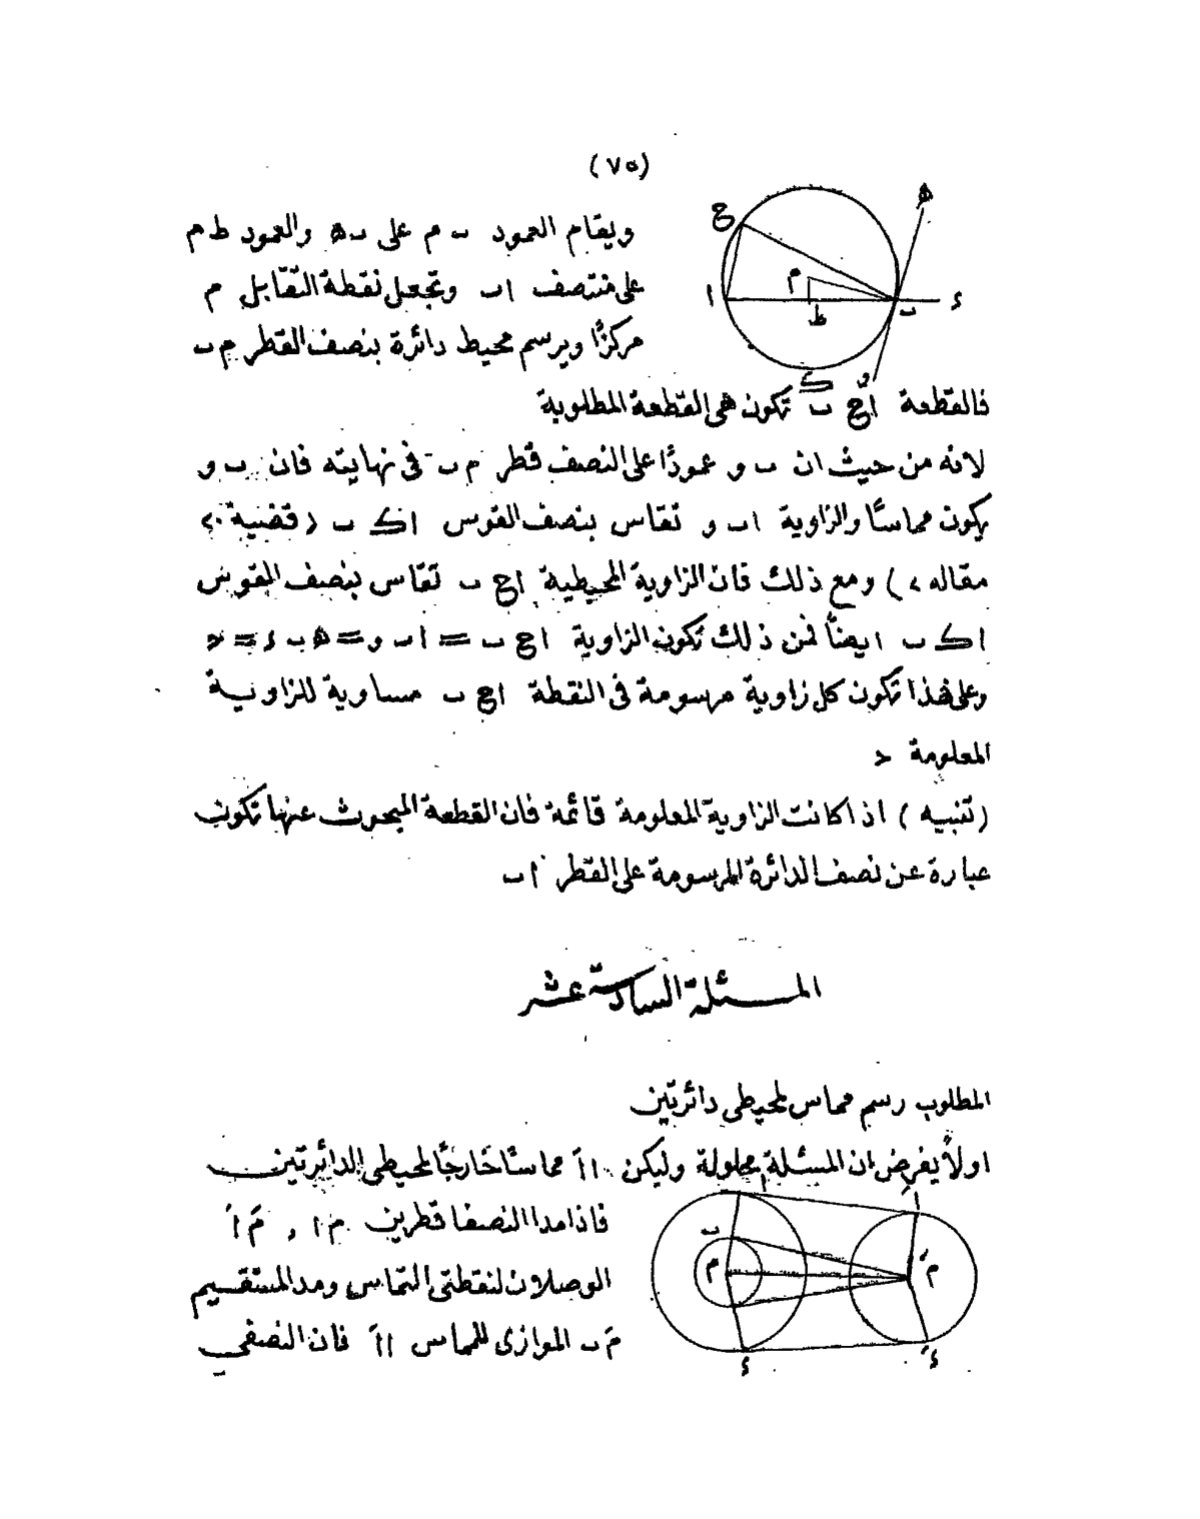 (٧٥)
ويقام العمود ب م على ب ه والعمود ط م
على منتصف ا ب وتجعل نقطة التقابل م
مركزًا ويرسم محيط دائرة بنصف القطر م ب
فالقطعة ا ح ب تكون هى القطعة المطلوبة
لانه من حيث ان ب و عمودًا على النصف قطر م ب فى نهايته فان ب و
يكون مماسًا والزاوية ا ب و تقاس بنصف القوس ا ك ب (قضية ٢٠
مقاله ٢) ومع ذلك فان الزاوية المحيطية ا ح ب تقاس بنصف القوس
ا ك ب ايضًا فمن ذلك تكون الزاوية ا ح ب = ا ب و = ه ب ء = د
وعلى هذا تكون كل زاوية مرسومة فى النقطة ا ح ب مساوية للزاوية
المعلومة د
(تنبيه) اذا كانت الزاوية المعلومة قائمة فان القطعة المبحوث عنها تكون
عبارة عن نصف الدائرة المرسومة على القطر ا ب
المسئلة السادسة عشر
المطلوب رسم مماس لمحيطى دائرتين
اولاً يفرض ان المسئلة محلولة وليكن ا اَ مماسًا خارجًا لمحيطى الدائرتين
فاذا مدا النصفا قطرين م ا , مَ اَ
الوصلان لنقطتى التماس ومد المستقيم
مَ ب الموازى للمماس ا اَ فان النصفى